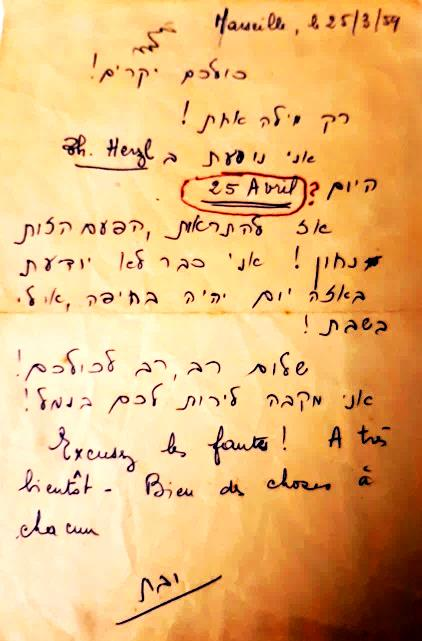 Marseille, le 25/3/59
כולכם יקרים!
רק מילה אחת!
אני נוסעת ב Th. Herzl
היום 25 Avril ?
אז להתראות, הפעם הזות
נחון! אני כבר לא יודעת
באזה יום יהיה בחיפה, אולי
בשבת!
שלום רב, רב לכולכם!
אני מקבה לירות לכם בנמל!
Excusez les fautes! A très
bientôt - Bien des choses à
chacun